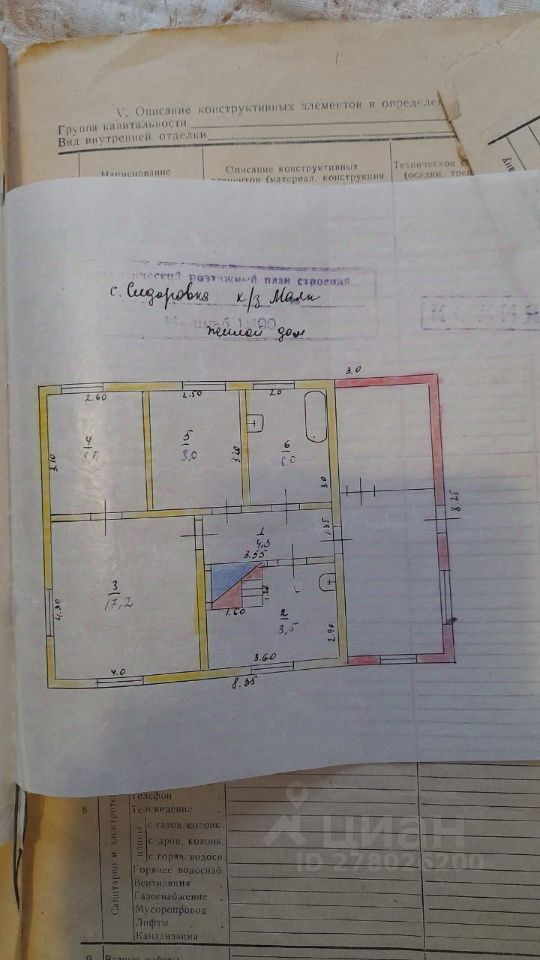 V. Описание конструктивных элементов и определе
Группа капитальности
Вид внутренней отделки
Наименование
Описание конструктивных
элементов (материал, конструкция
Техническое с
(осадки, трещ
ану
ический поэтажный план строения
с. Сидоровка к/з Маяк
Масштаб 1:100
жилой дом
КОПИЯ
3.0
2.60
2.50
2.0
4
5
8,0
6
6.0
3.10
3.20
3.0
8.25
1
4,9
3.55
1.35
3
17,2
4.30
1.60
2
8,5
2.90
4.0
3.60
8.35
Телефон
8
Телевидение
Санитарно и электроте
ванны
с газов. колонк.
с дров. колонк.
с горяч. водосн.
Горячее водоснаб
Вентиляция
Газоснабжение
Мусоропровод
Лифты
Канализация
9
Разные работы
Циан
ID 278026200